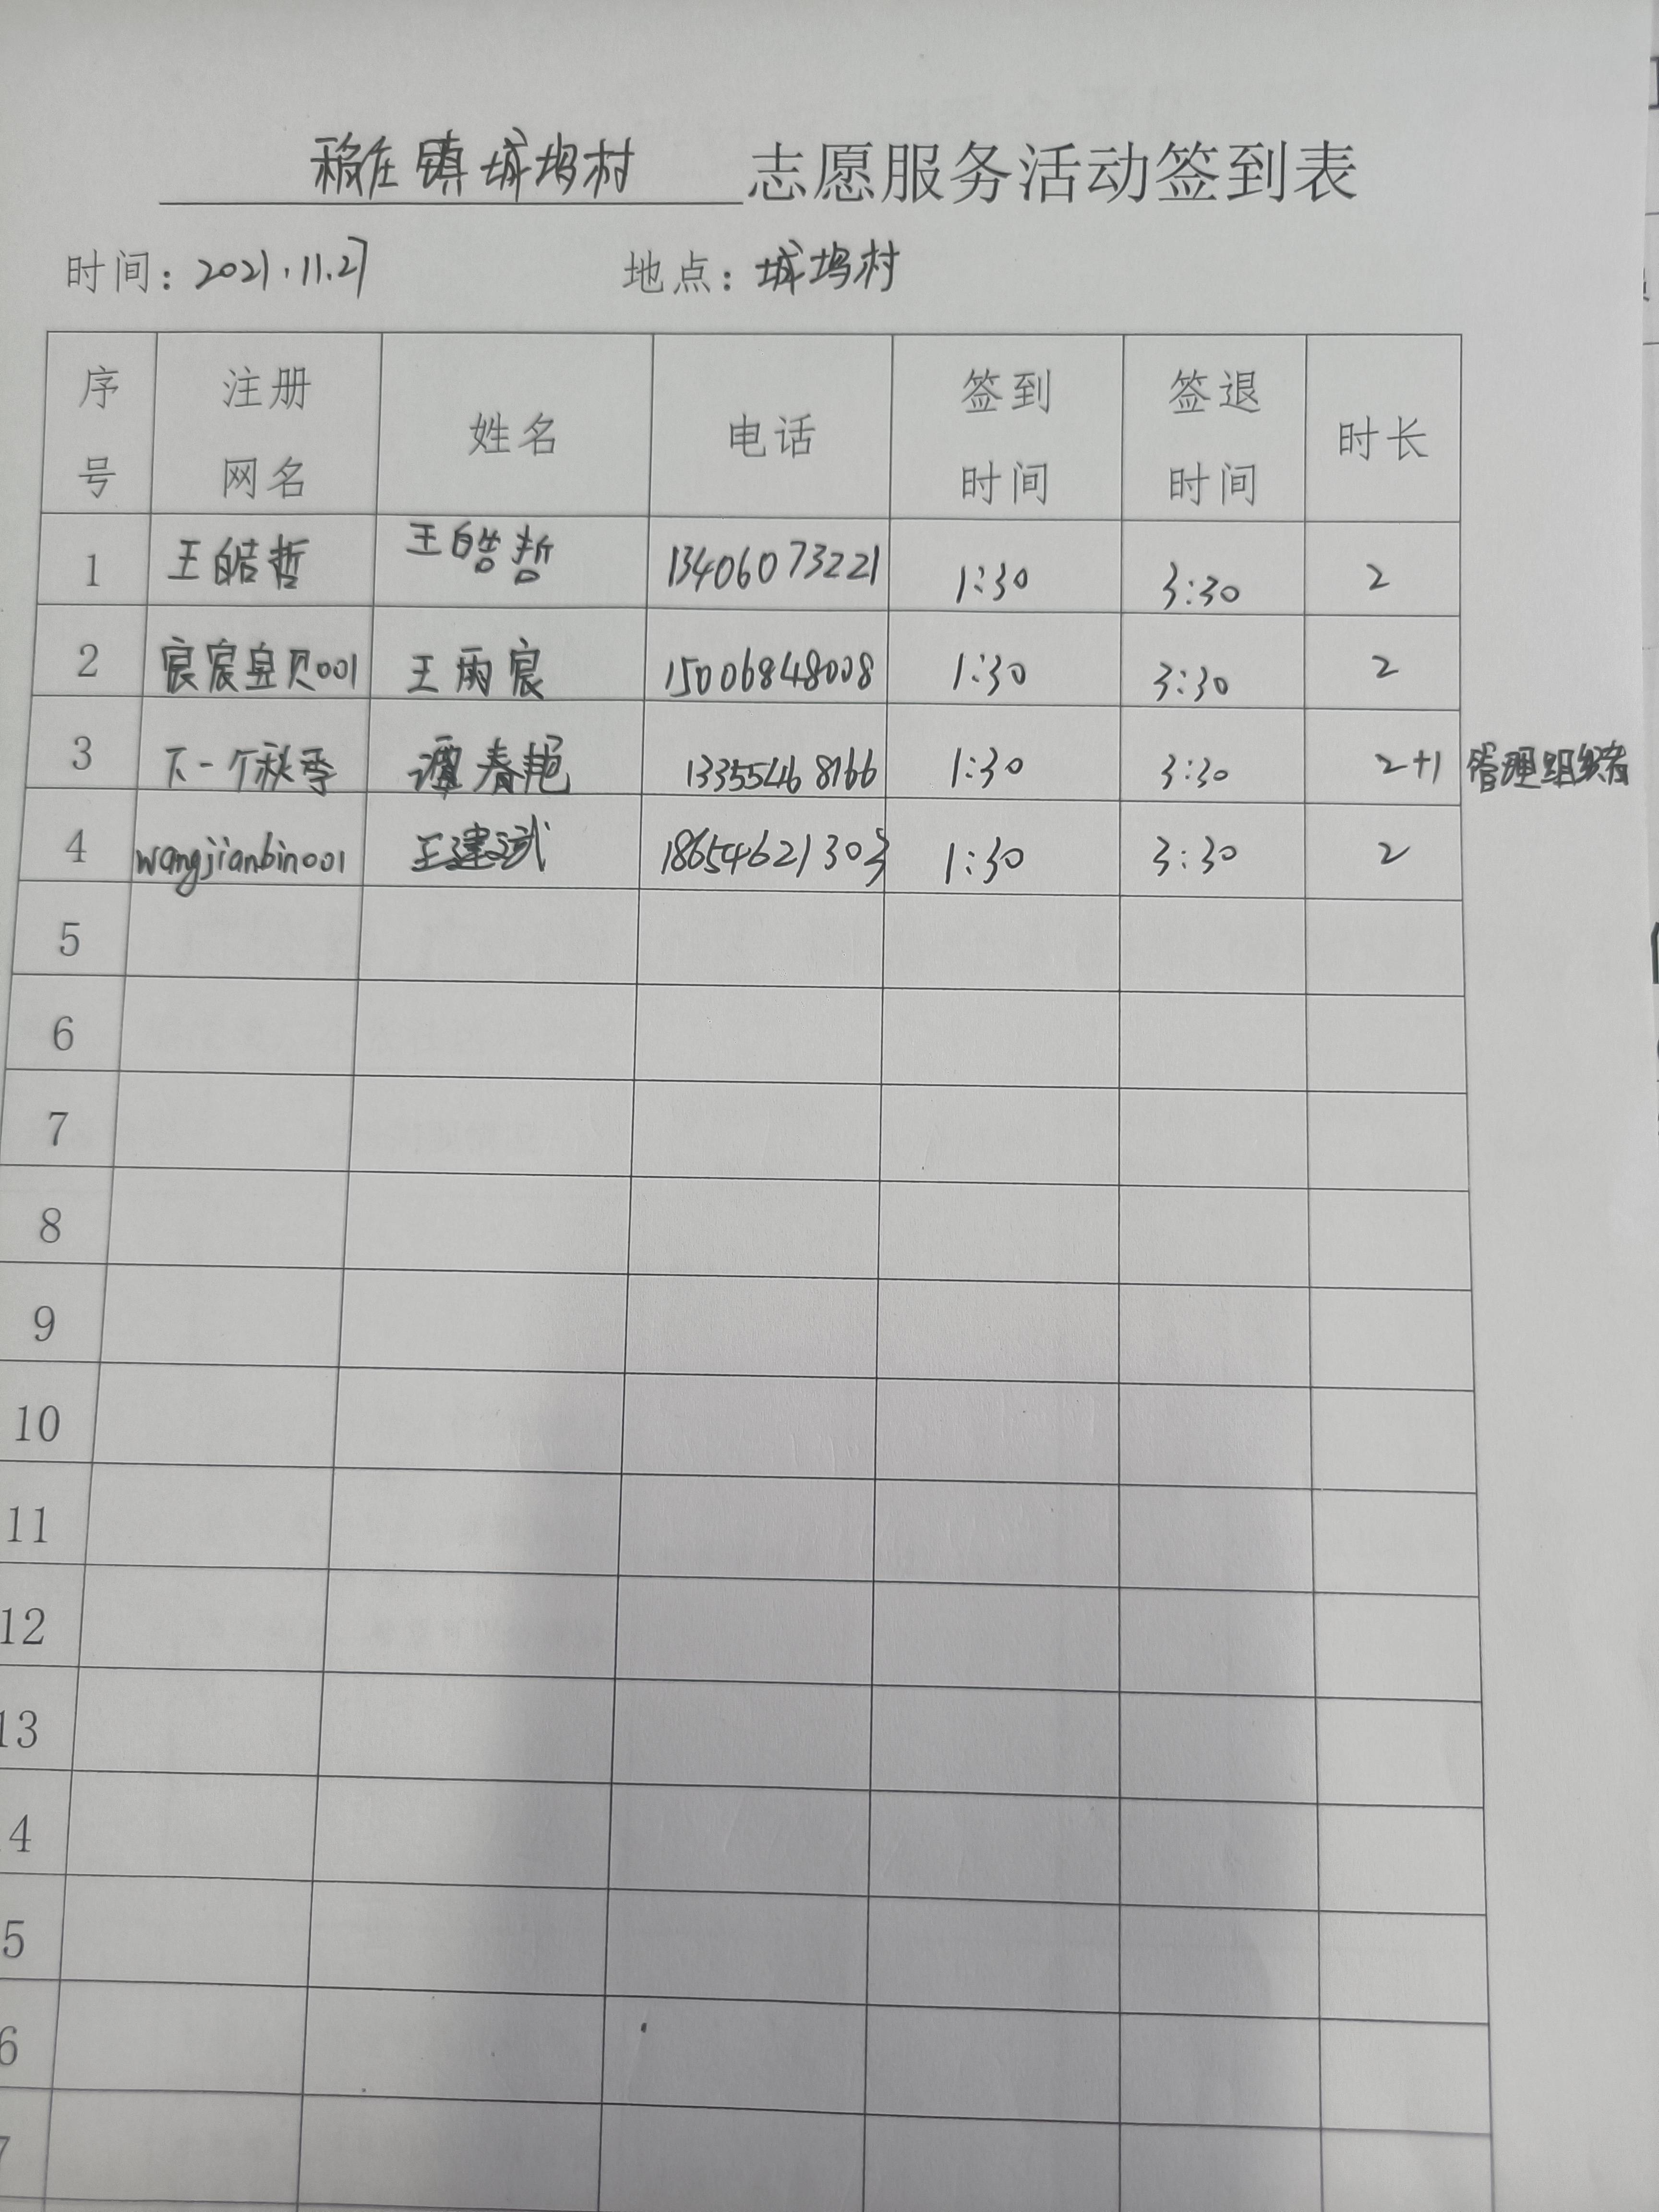 稳庄镇城坞村志愿服务活动签到表
时间：2021.11.27 地点：城坞村
序号 注册网名 姓名 电话 签到时间 签退时间 时长
1 王皓哲 王皓哲 13406073221 1:30 3:30 2
2 宸宸宝贝001 王雨宸 15006848008 1:30 3:30 2
3 下一个秋季 谭春艳 13355468166 1:30 3:30 2+1 管理组织者
4 wangjianbin001 王建斌 18654621303 1:30 3:30 2
5
6
7
8
9
10
11
12
13
4
5
6
7